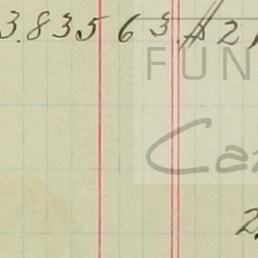 3.835 63. # 2
FUN
Ca
2